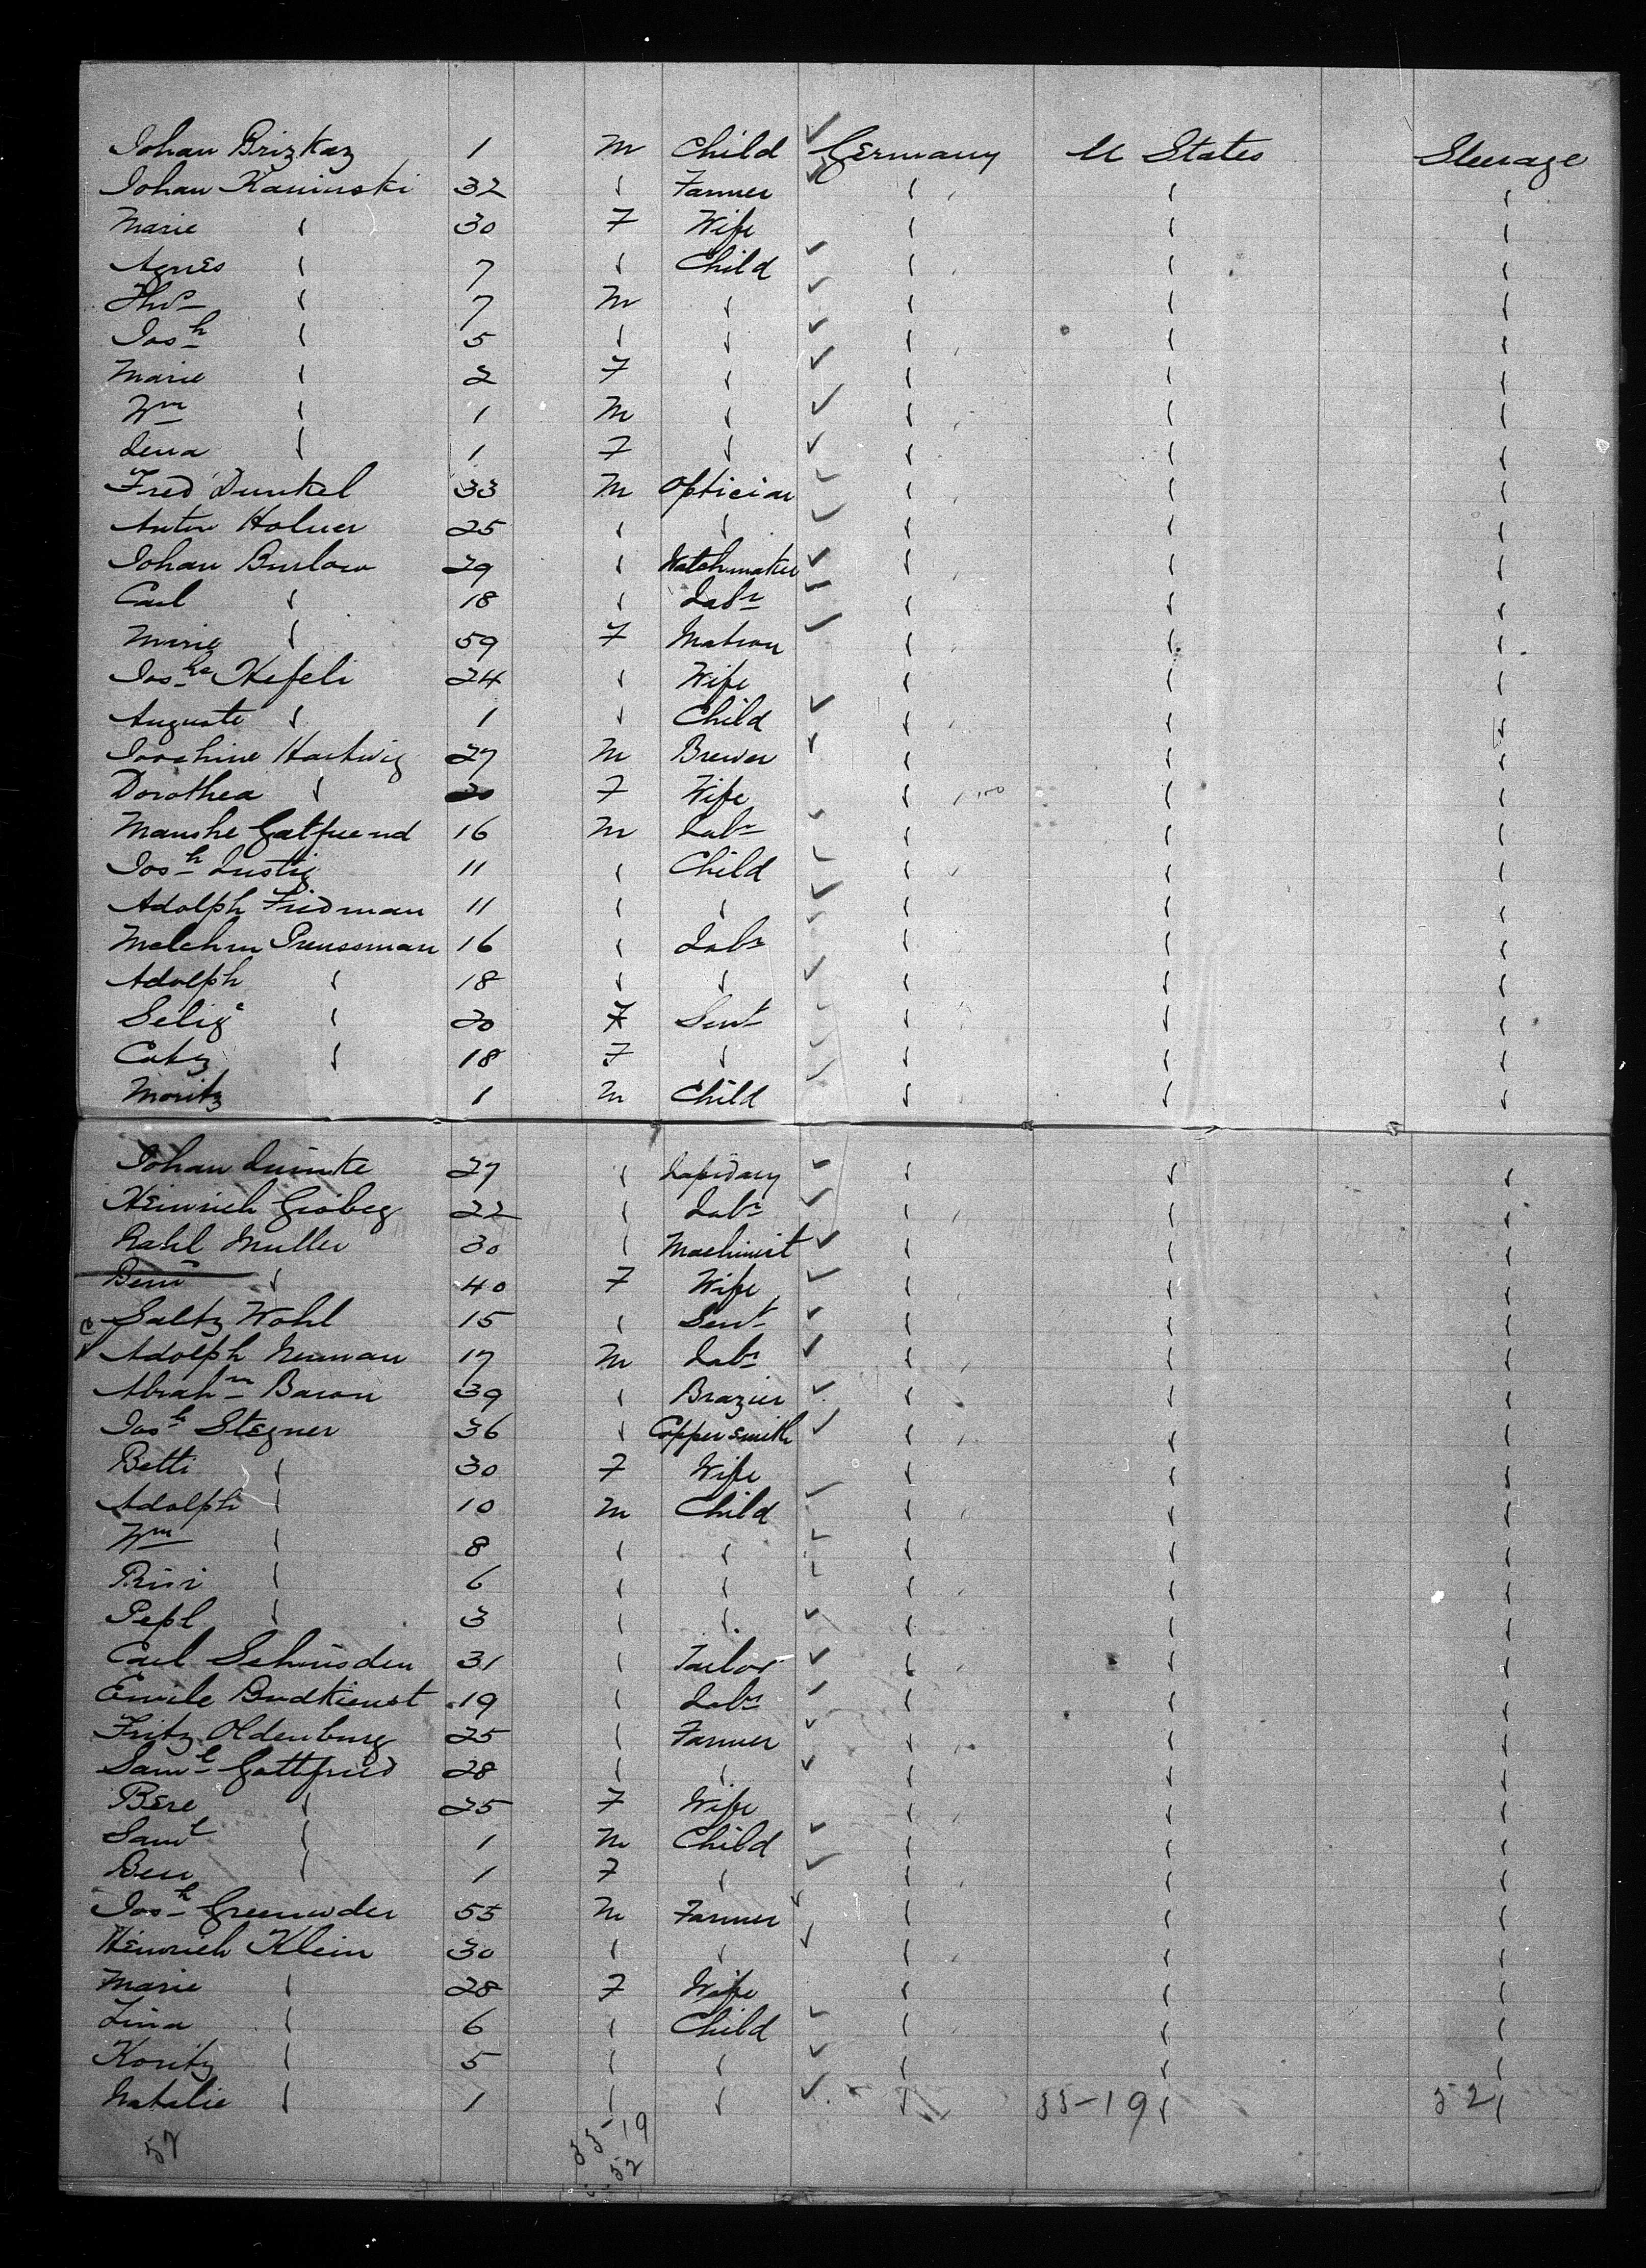 Johan Brizkaz 1 M Child Germany U States Steerage
Johan Kaminski 32 " Farmer " " "
Marie " 30 F Wife " " "
Agnes " 7 " Child " " "
Thos " 7 M " " " "
Josh " 5 " " " " "
Marie " 2 F " " " "
Wm " 1 M " " " "
Lena " 1 F " " " "
Fred Dunkel 33 M Optician " " "
Anton Holner 25 " " " " "
Johan Burlow 29 " Watchmaker " " "
Carl " 18 " Labr " " "
Marie " 59 F Matron " " "
Josha Hefeli 24 " Wife " " "
Auguste " 1 " Child " " "
Joachine Hartwig 27 M Brewer " " "
Dorothea " 20 F Wife " " "
Manshe Gatfreund 16 M Labr " " "
Josh Lustig 11 " Child " " "
Adolph Fridman 11 " " " " "
Melchm Preussman 16 " Labr " " "
Adolph " 18 " " " " "
Selig " 20 F Servt " " "
Catz " 18 F " " " "
Moritz 1 M Child " " "
Johan 27 " Lapidary " " "
Heinrich Grobeg 22 " Labr " " "
Rahl Muller 30 " Machinist " " "
Beni " 40 F Wife " " "
Saltz Wohl 15 " Servt " " "
Adolph Neuman 17 M Labr " " "
Abrahm Baron 39 " Brazier " " "
Josh Stegner 36 " Coppersmith " " "
Betti " 30 F Wife " " "
Adolph " 10 M Child " " "
Wm " 8 " " " " "
Risi " 6 " " " " "
Pepl " 3 " " " " "
Carl Schnisden 31 " Tailor " " "
Emile Budkienst 19 " Labr " " "
Fritz Oldenburg 25 " Farmer " " "
Saml Gottfried 28 " " " " "
Bere " 25 F Wife " " "
Saml " 1 M Child " " "
Ben " 1 F " " " "
Josh Greenwder 55 M Farmer " " "
Heinrich Klein 30 " " " " "
Marie " 28 F Wife " " "
Lina " 6 " Child " " "
Koritz " 5 " " " " "
Natalie " 1 " " " 33-19 " 52 "
57 33-19
52